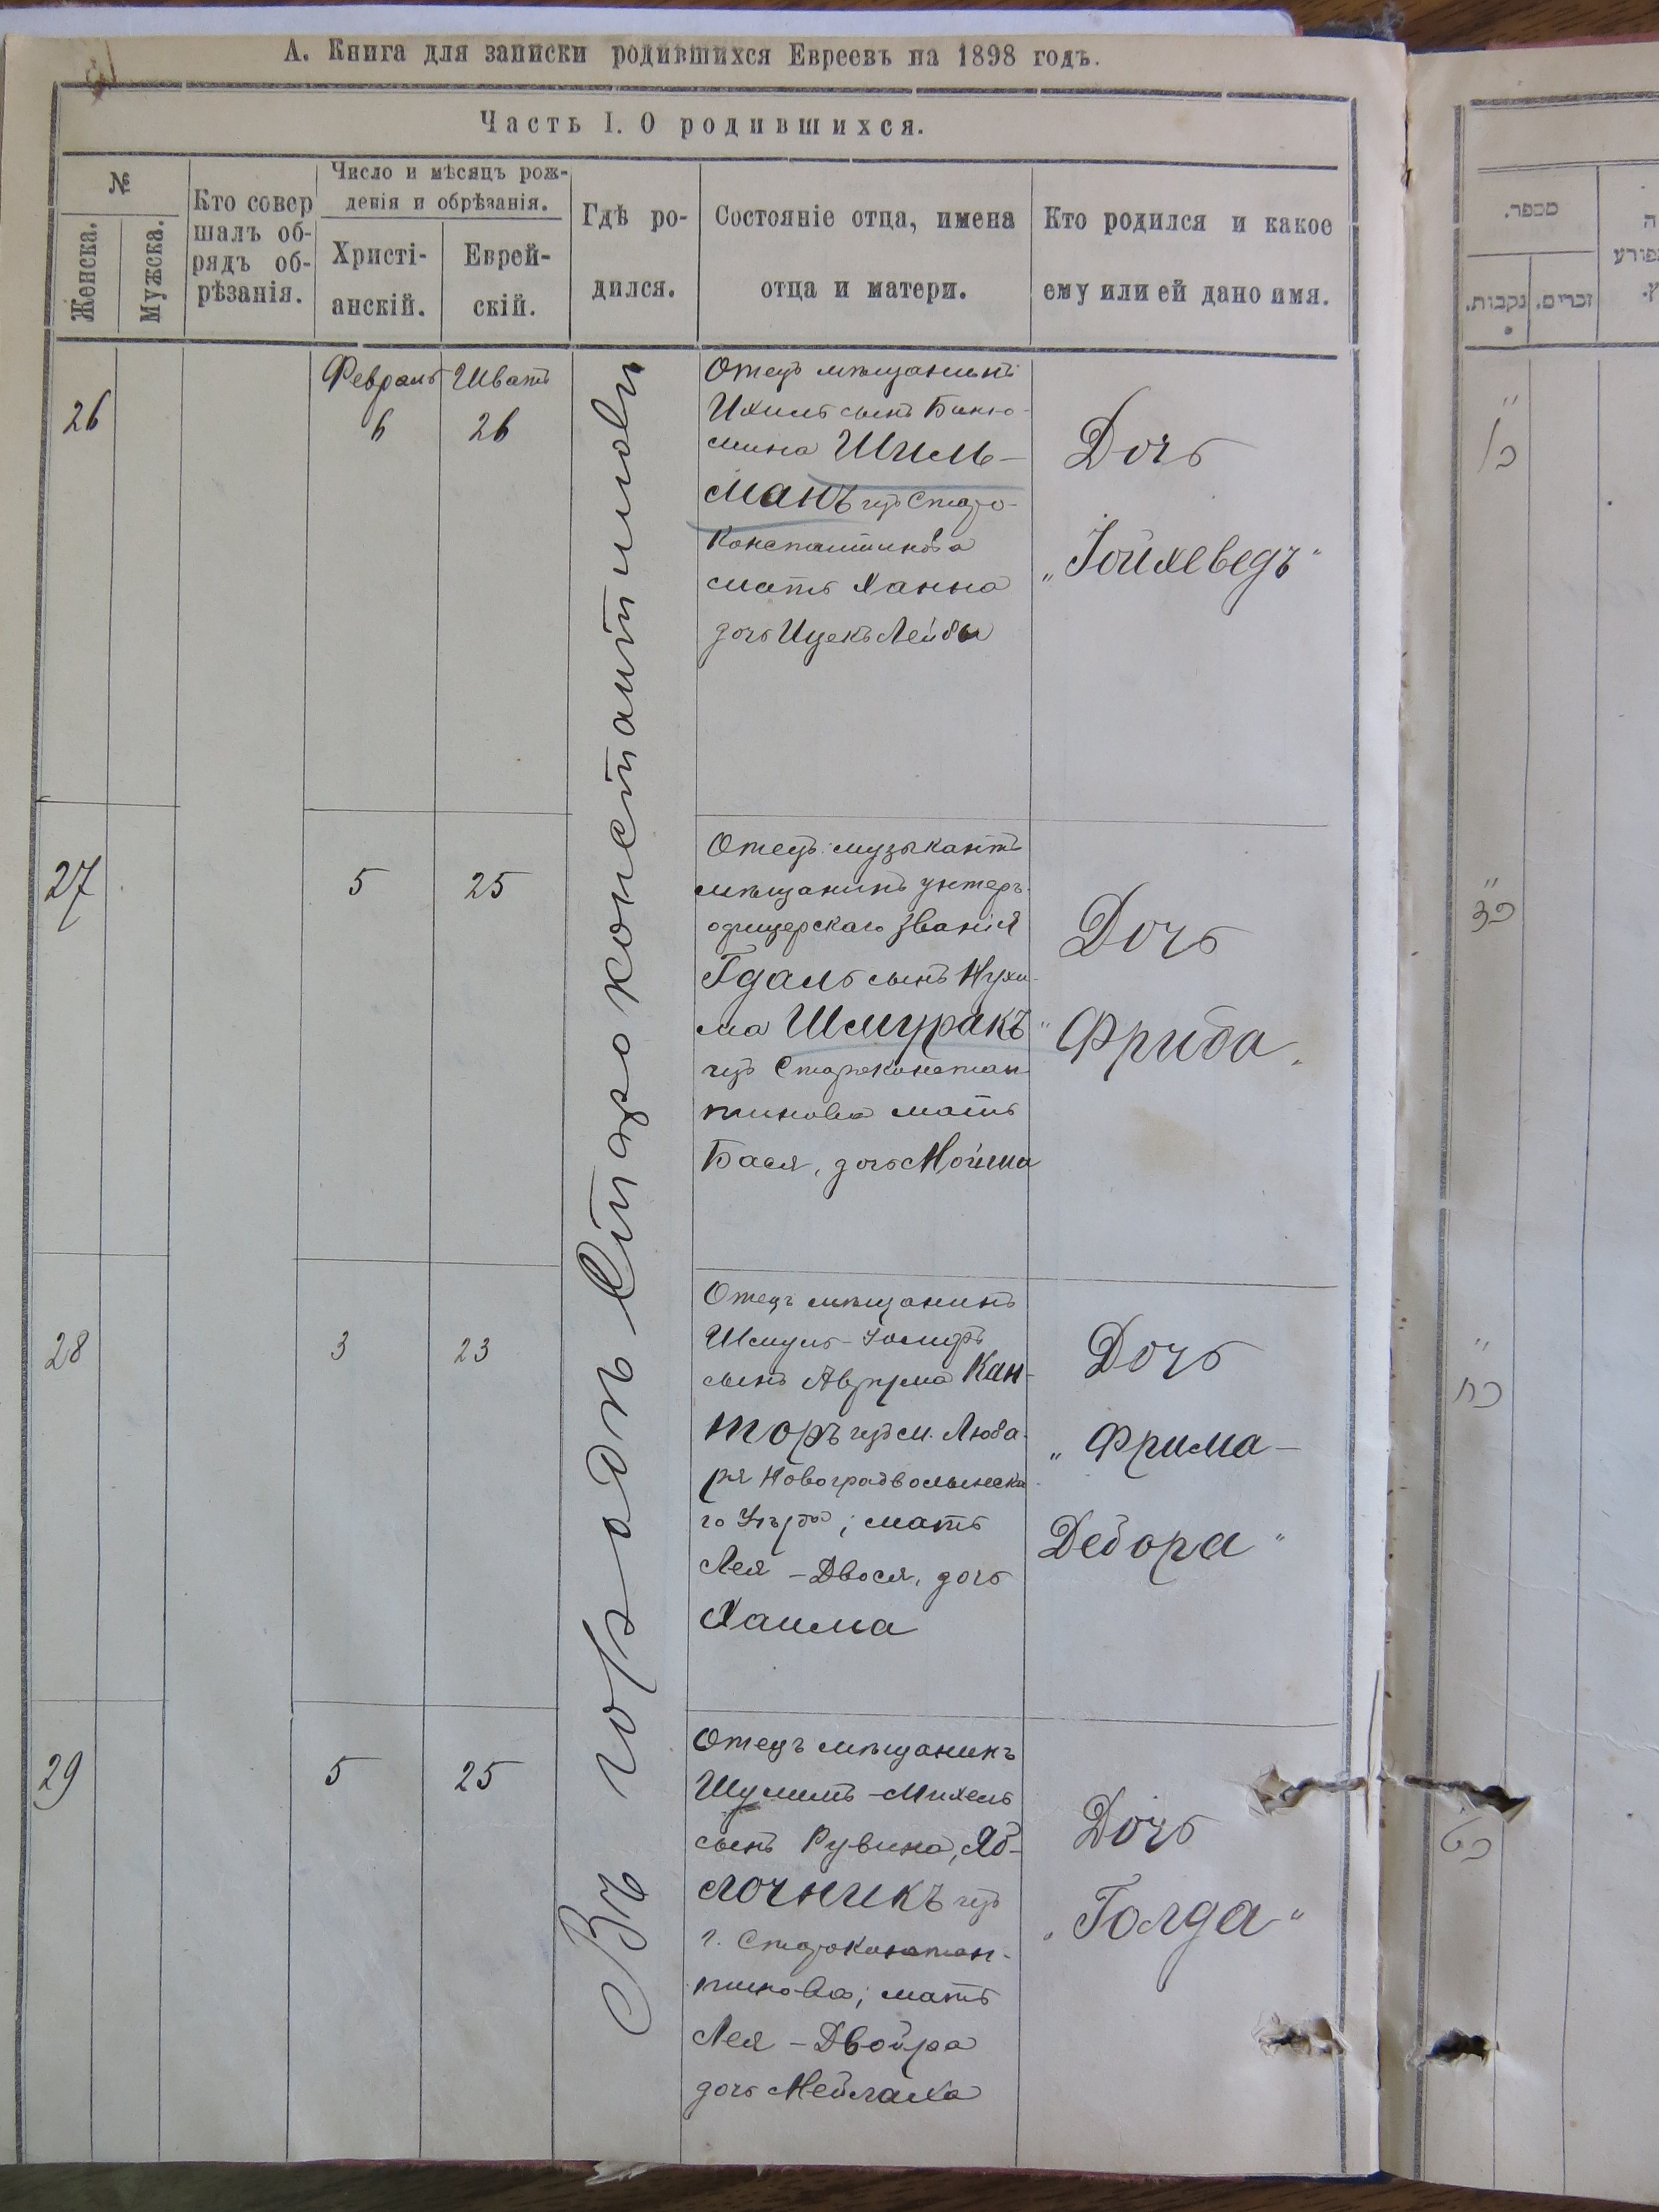 А. Книга для записки родившихся Евреевъ на 1898 годъ.
Часть I. О родившихся.
№
Женска.
Мужска.
Кто совер
шалъ об-
рядъ об-
рѣзанія.
Число и мѣсяцъ рож-
денія и обрѣзанія.
Христі-
анскій.
Еврей-
скій.
Гдѣ ро-
дился.
Состояніе отца, имена
отца и матери.
Кто родился и какое
ему или ей дано имя.
Въ городѣ Староконстантиновѣ
26
Февраль Шватъ
6 26
Отецъ мѣщанинъ
Ихиль сынъ Биню-
мина Шиль-
манъ изъ Старо-
Константинова
мать Ханна
дочь Ицекъ Лейбы
Дочь
„Іойхеведъ"
27
5 25
Отецъ музыкантъ
мѣщанинъ унтеръ-
офицерскаго званія
Гдаль сынъ Нухи-
ма Шмуракъ
изъ Староконстан-
тинова мать
Бася, дочь Мойши
Дочь
"Фрида"
28
3 23
Отецъ мѣщанинъ
Шмуль-Іосифъ
сынъ Аврума Кан-
торъ изъ м. Люба-
ря Новоградволынска-
го Уѣзда; мать
Лея - Двося, дочь
Хаима
Дочь
„Фрима-
Дебора"
29
5 25
Отецъ мѣщанинъ
Шулимъ-Михель
сынъ Рувина, Яб-
лочникъ изъ
г. Староконстан-
тинова; мать
Лея - Двойра
дочь Мейлаха
Дочь
„Голда"
מספר.
נקבות.
זכרים.
כו
כז
כח
כט